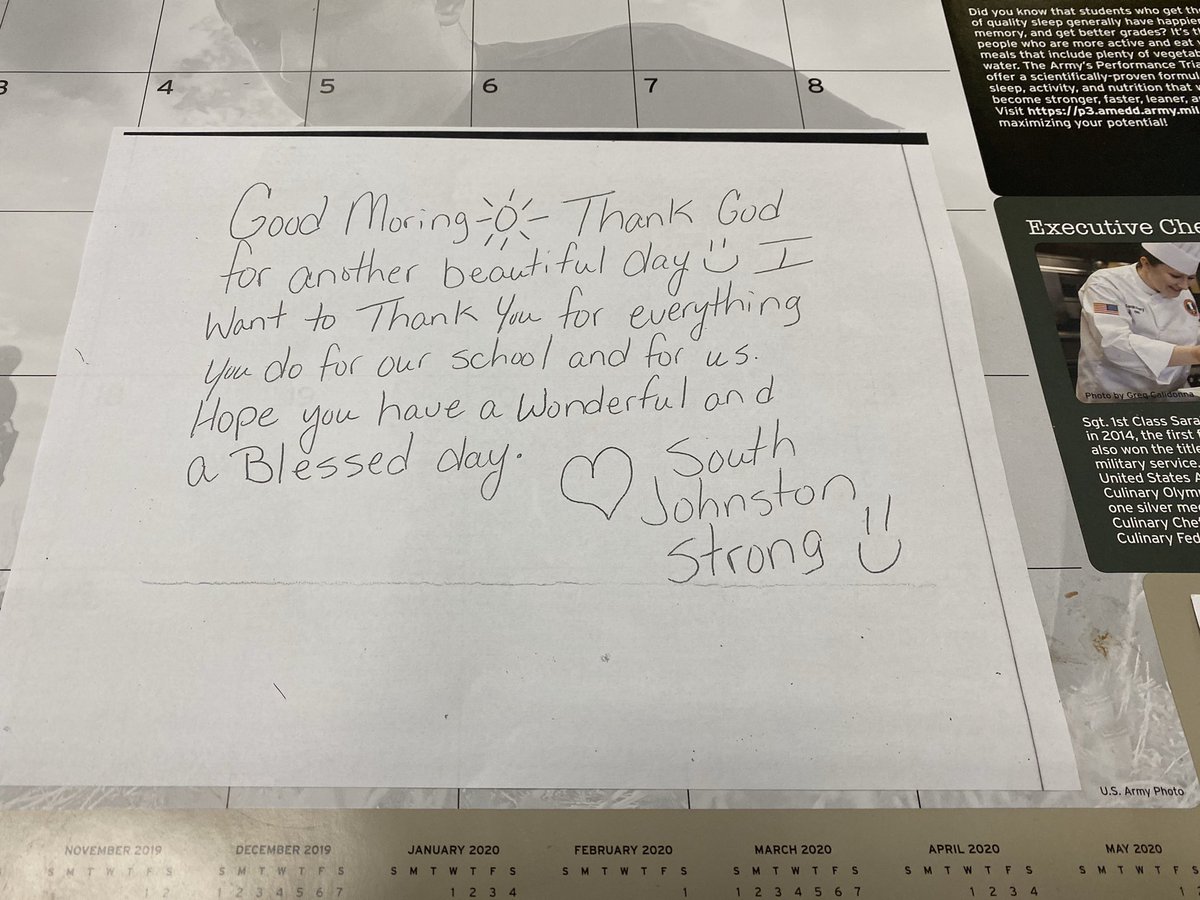 Did you know that students who get the
of quality sleep generally have happier
memory, and get better grades? It's th
people who are more active and eat
meals that include plenty of vegetab
water. The Army's Performance Tria
offer a scientifically-proven formul
sleep, activity, and nutrition that w
become stronger, faster, leaner, a
Visit https://p3.amedd.army.mil
maximizing your potential!
3 4 5 6 7 8
Good Moring Thank God
for another beautiful day I
Want to Thank You for everything
you do for our school and for us.
Hope you have a Wonderful and
a Blessed day.
South
Johnston
Strong
Executive Che
Photo by Greg Calidonna
Sgt. 1st Class Sara
in 2014, the first f
also won the title
military service.
United States A
Culinary Olym
one silver me
Culinary Chef
Culinary Fed
U.S. Army Photo
NOVEMBER 2019 DECEMBER 2019 JANUARY 2020 FEBRUARY 2020 MARCH 2020 APRIL 2020 MAY 2020
S M T W T F S S M T W T F S S M T W T F S S M T W T F S S M T W T F S S M T W T F S S M T W T
1 2 1 2 3 4 5 6 7 1 2 3 4 1 1 2 3 4 5 6 7 1 2 3 4 1